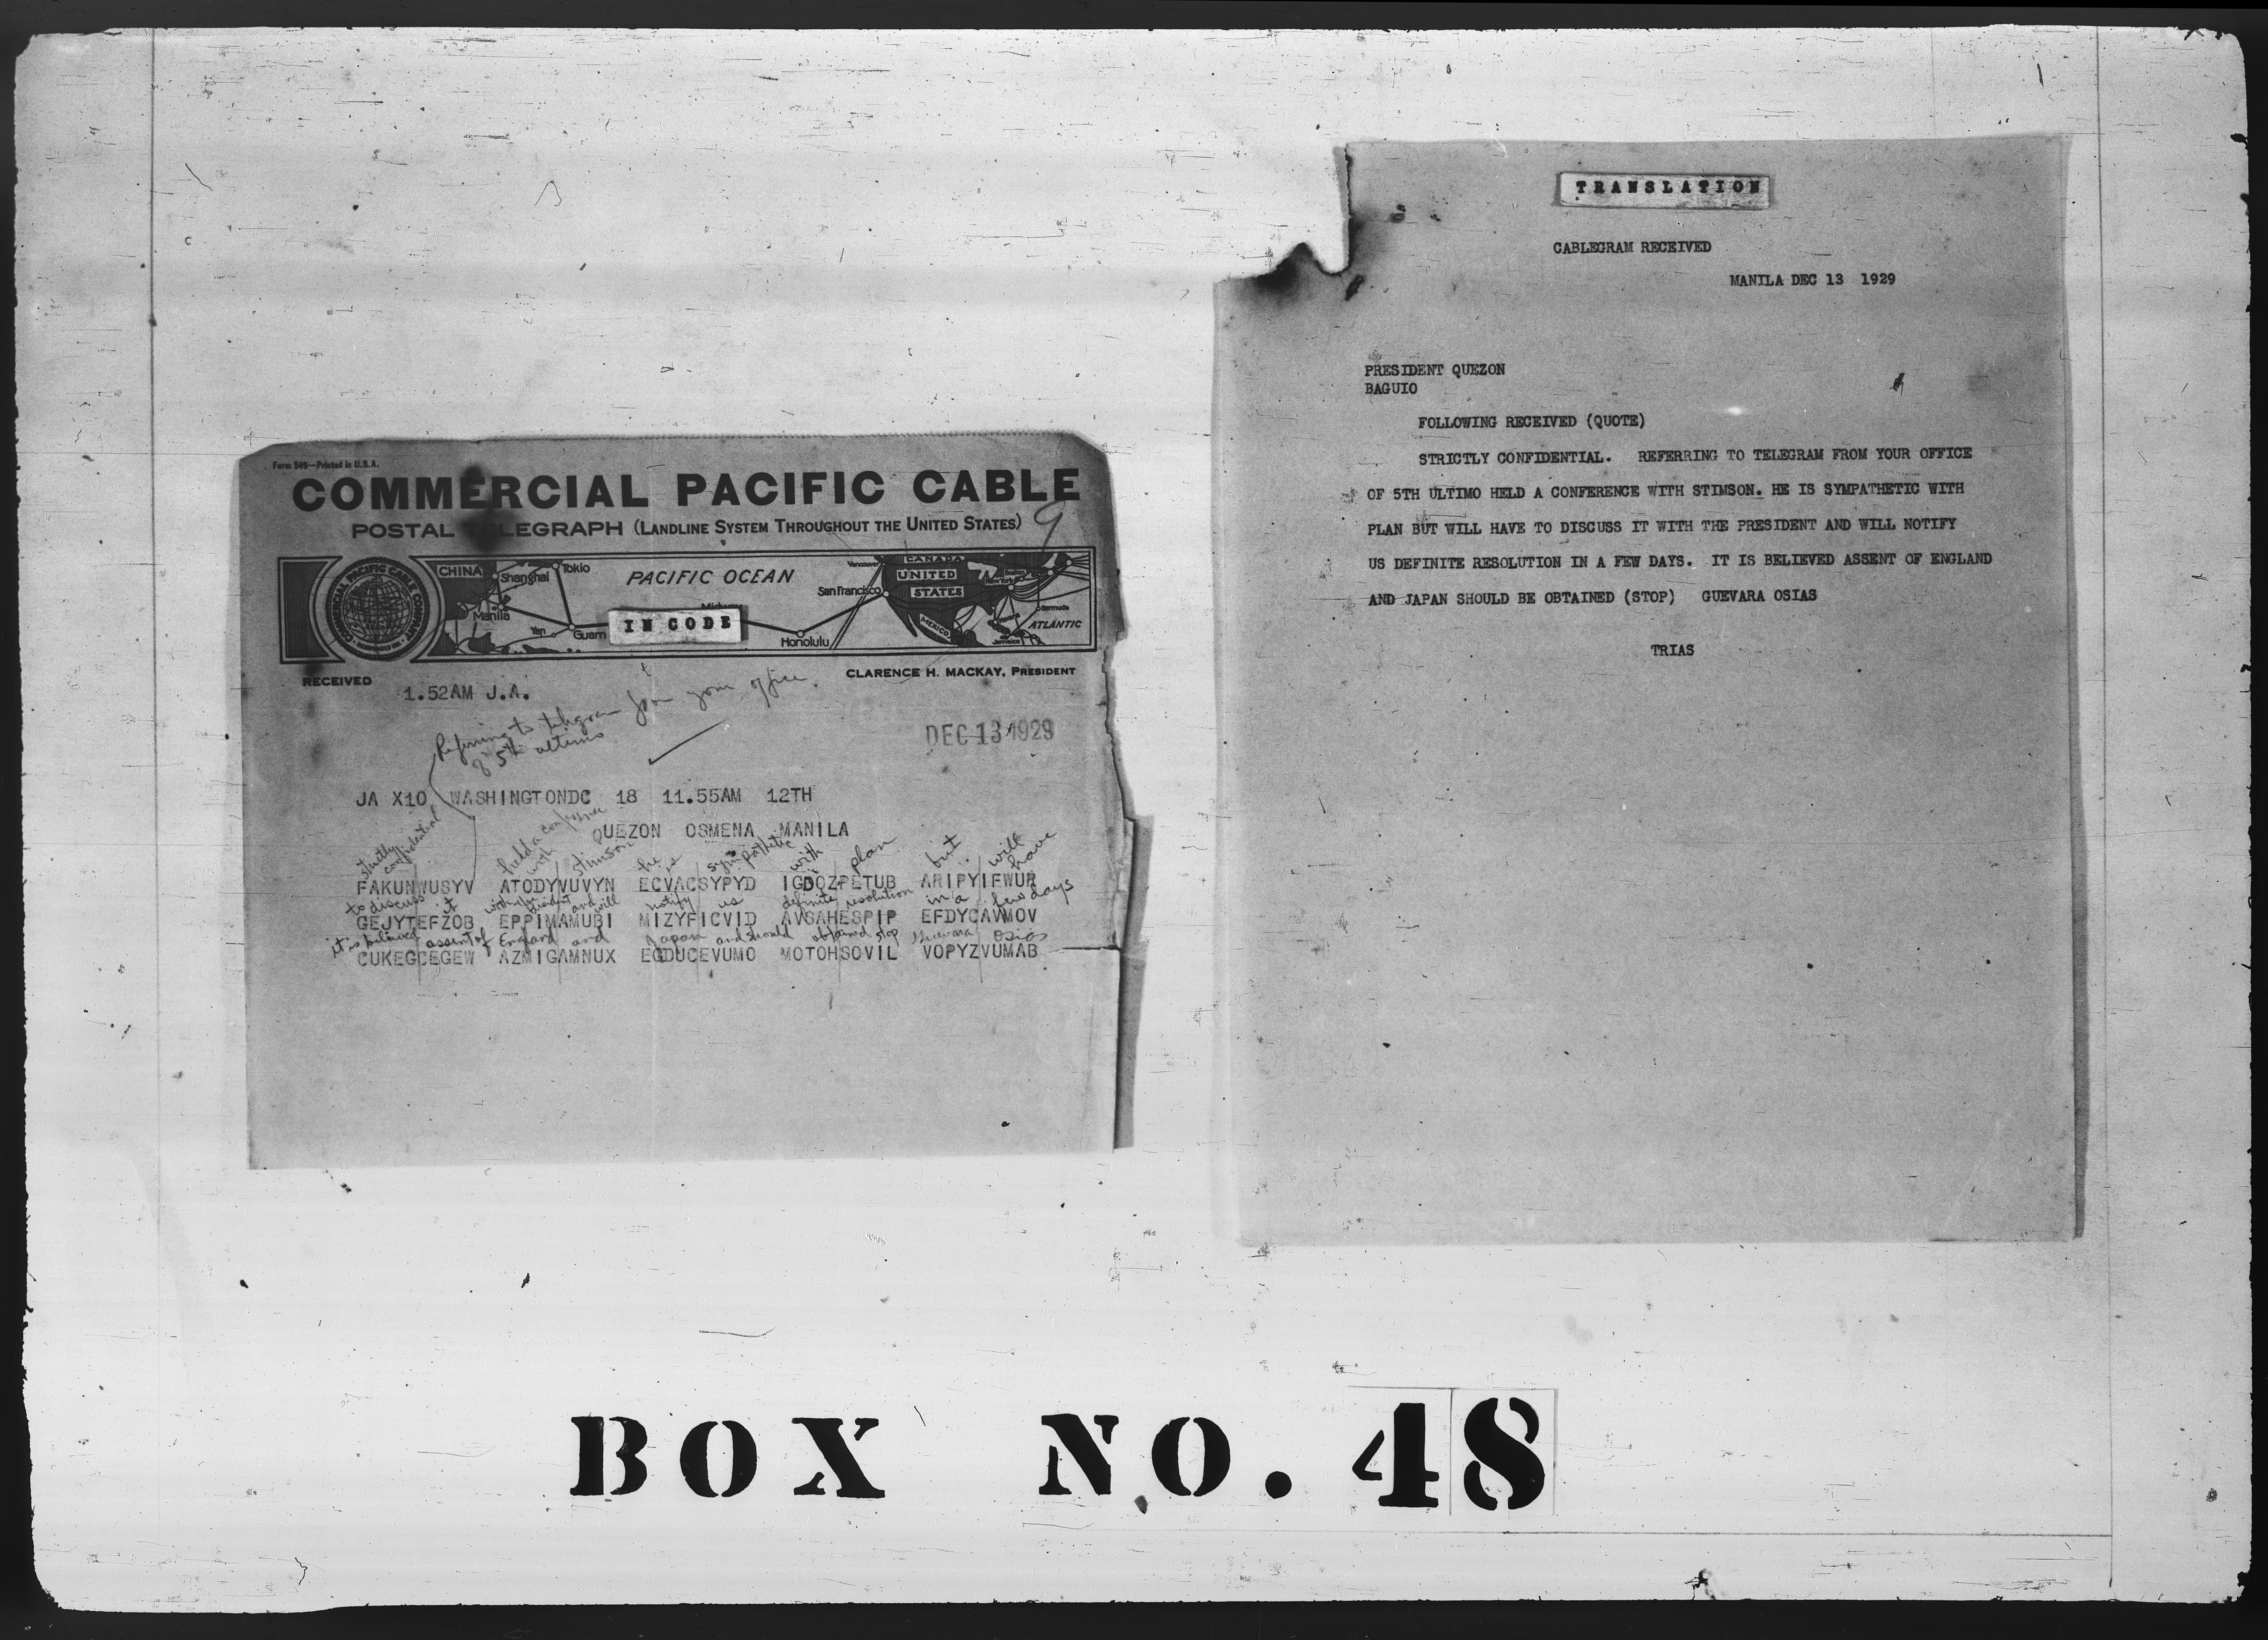 Form 549—Printed in U.S.A.
COMMERCIAL PACIFIC CABLE
POSTAL TELEGRAPH (LANDLINE SYSTEM THROUGHOUT THE UNITED STATES)
9
COMMERCIAL PACIFIC CABLE COMPANY
CHINA
Shanghai
Tokio
PACIFIC OCEAN
Vancouver
CANADA
UNITED
STATES
San Francisco
Boston
New York
Bermuda
Manila
Yap
Guam
Midway
IN CODE
Honolulu
MEXICO
Havana
Jamaica
ATLANTIC
RECEIVED
CLARENCE H. MACKAY, PRESIDENT
1.52AM J.A.
Referring to telegram from your office
of 5th ultimo
DEC 13 1929
JA X10 WASHINGTONDC 18 11.55AM 12TH
QUEZON OSMENA MANILA
strictly confidential held a conference with Stimson he is sympathetic with plan but will have
FAKUNWUSYV ATODYVUVYN ECVACSYPYD IGDOZPETUB ARIPYIFWUR
to discuss it with president and will notify us definite resolution in a few days
GEJYTEFZOB EPPIMAMUBI MIZYFICVID AVSAHESPIP EFDYCAVMOV
it is believed assent of England and Japan and should obtained stop Guevara Osias
CUKEGCEGEW AZMIGAMNUX EGDUCEVUMO MOTOHSOVIL VOPYZVUMAB
TRANSLATION
CABLEGRAM RECEIVED
MANILA DEC 13 1929
PRESIDENT QUEZON
BAGUIO
FOLLOWING RECEIVED (QUOTE)
STRICTLY CONFIDENTIAL. REFERRING TO TELEGRAM FROM YOUR OFFICE
OF 5TH ULTIMO HELD A CONFERENCE WITH STIMSON. HE IS SYMPATHETIC WITH
PLAN BUT WILL HAVE TO DISCUSS IT WITH THE PRESIDENT AND WILL NOTIFY
US DEFINITE RESOLUTION IN A FEW DAYS. IT IS BELIEVED ASSENT OF ENGLAND
AND JAPAN SHOULD BE OBTAINED (STOP) GUEVARA OSIAS
TRIAS
BOX NO. 48